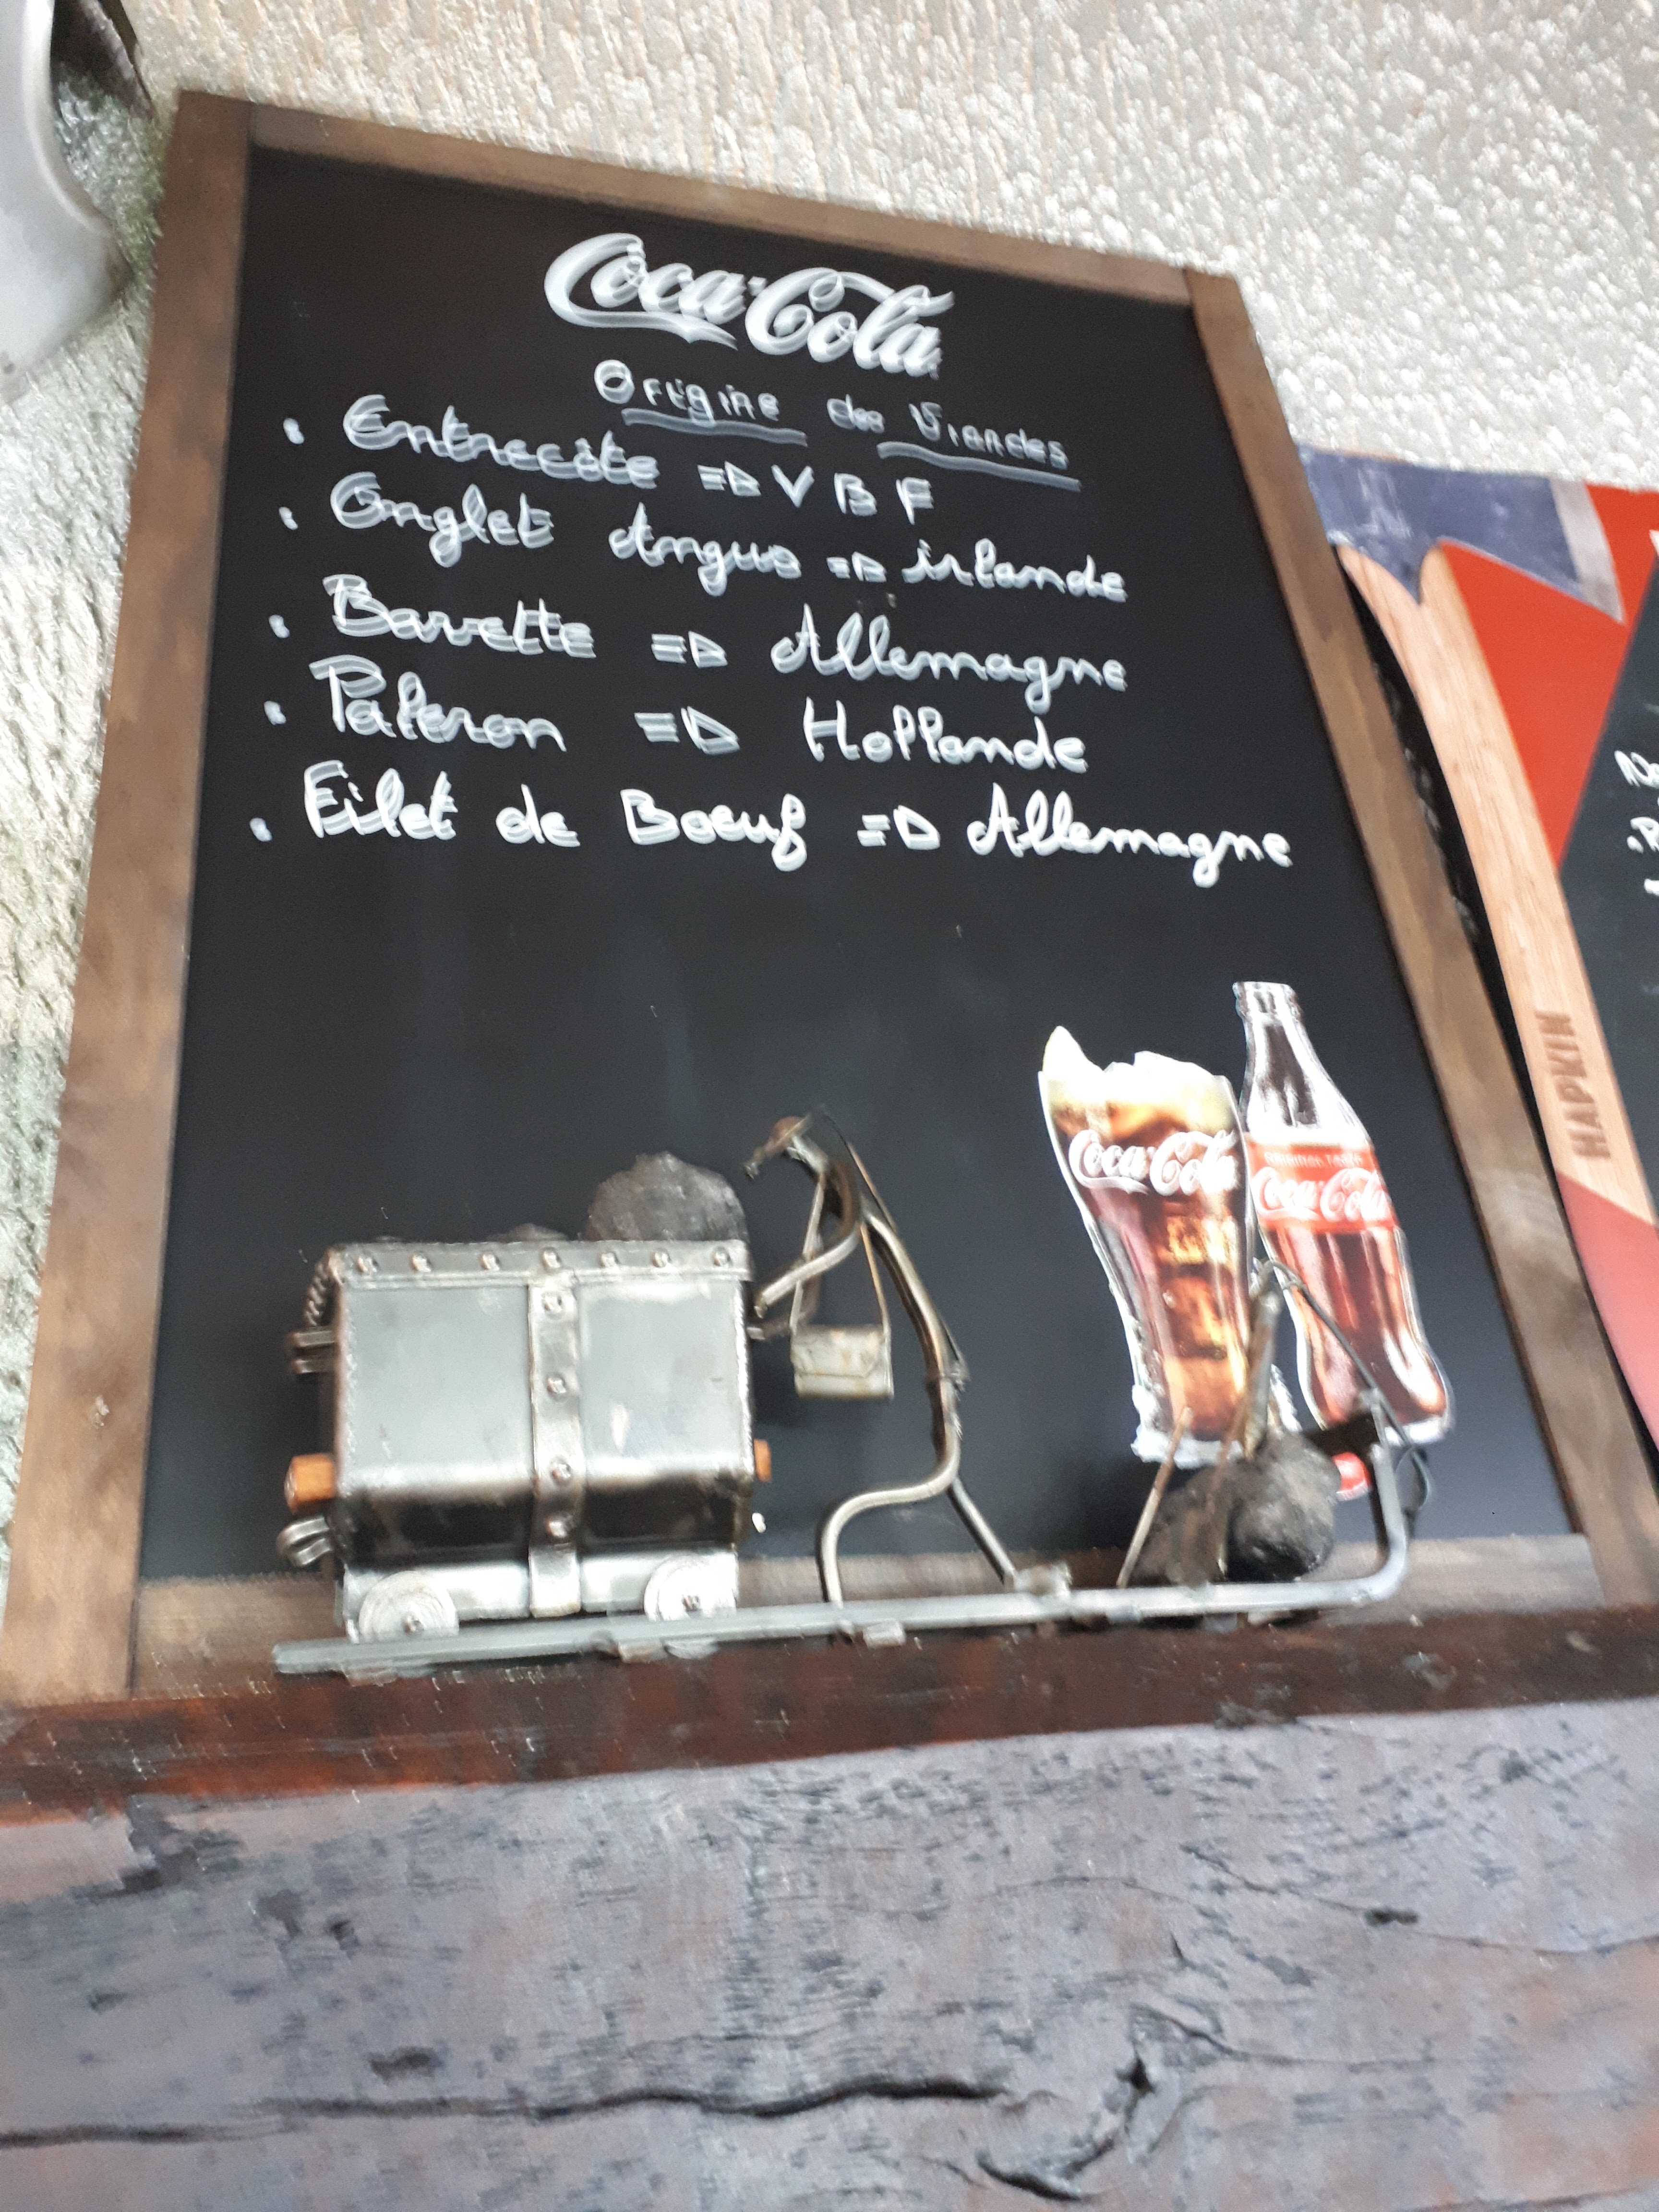 Coca-Cola
Origine des Viandes
• Entrecôte => V B F
• Onglet Angus => irlande
• Bavette => Allemagne
• Paleron => Hollande
• Filet de Boeuf => Allemagne
Coca-Cola
ORIGINAL TASTE
Coca-Cola
HAPKIN